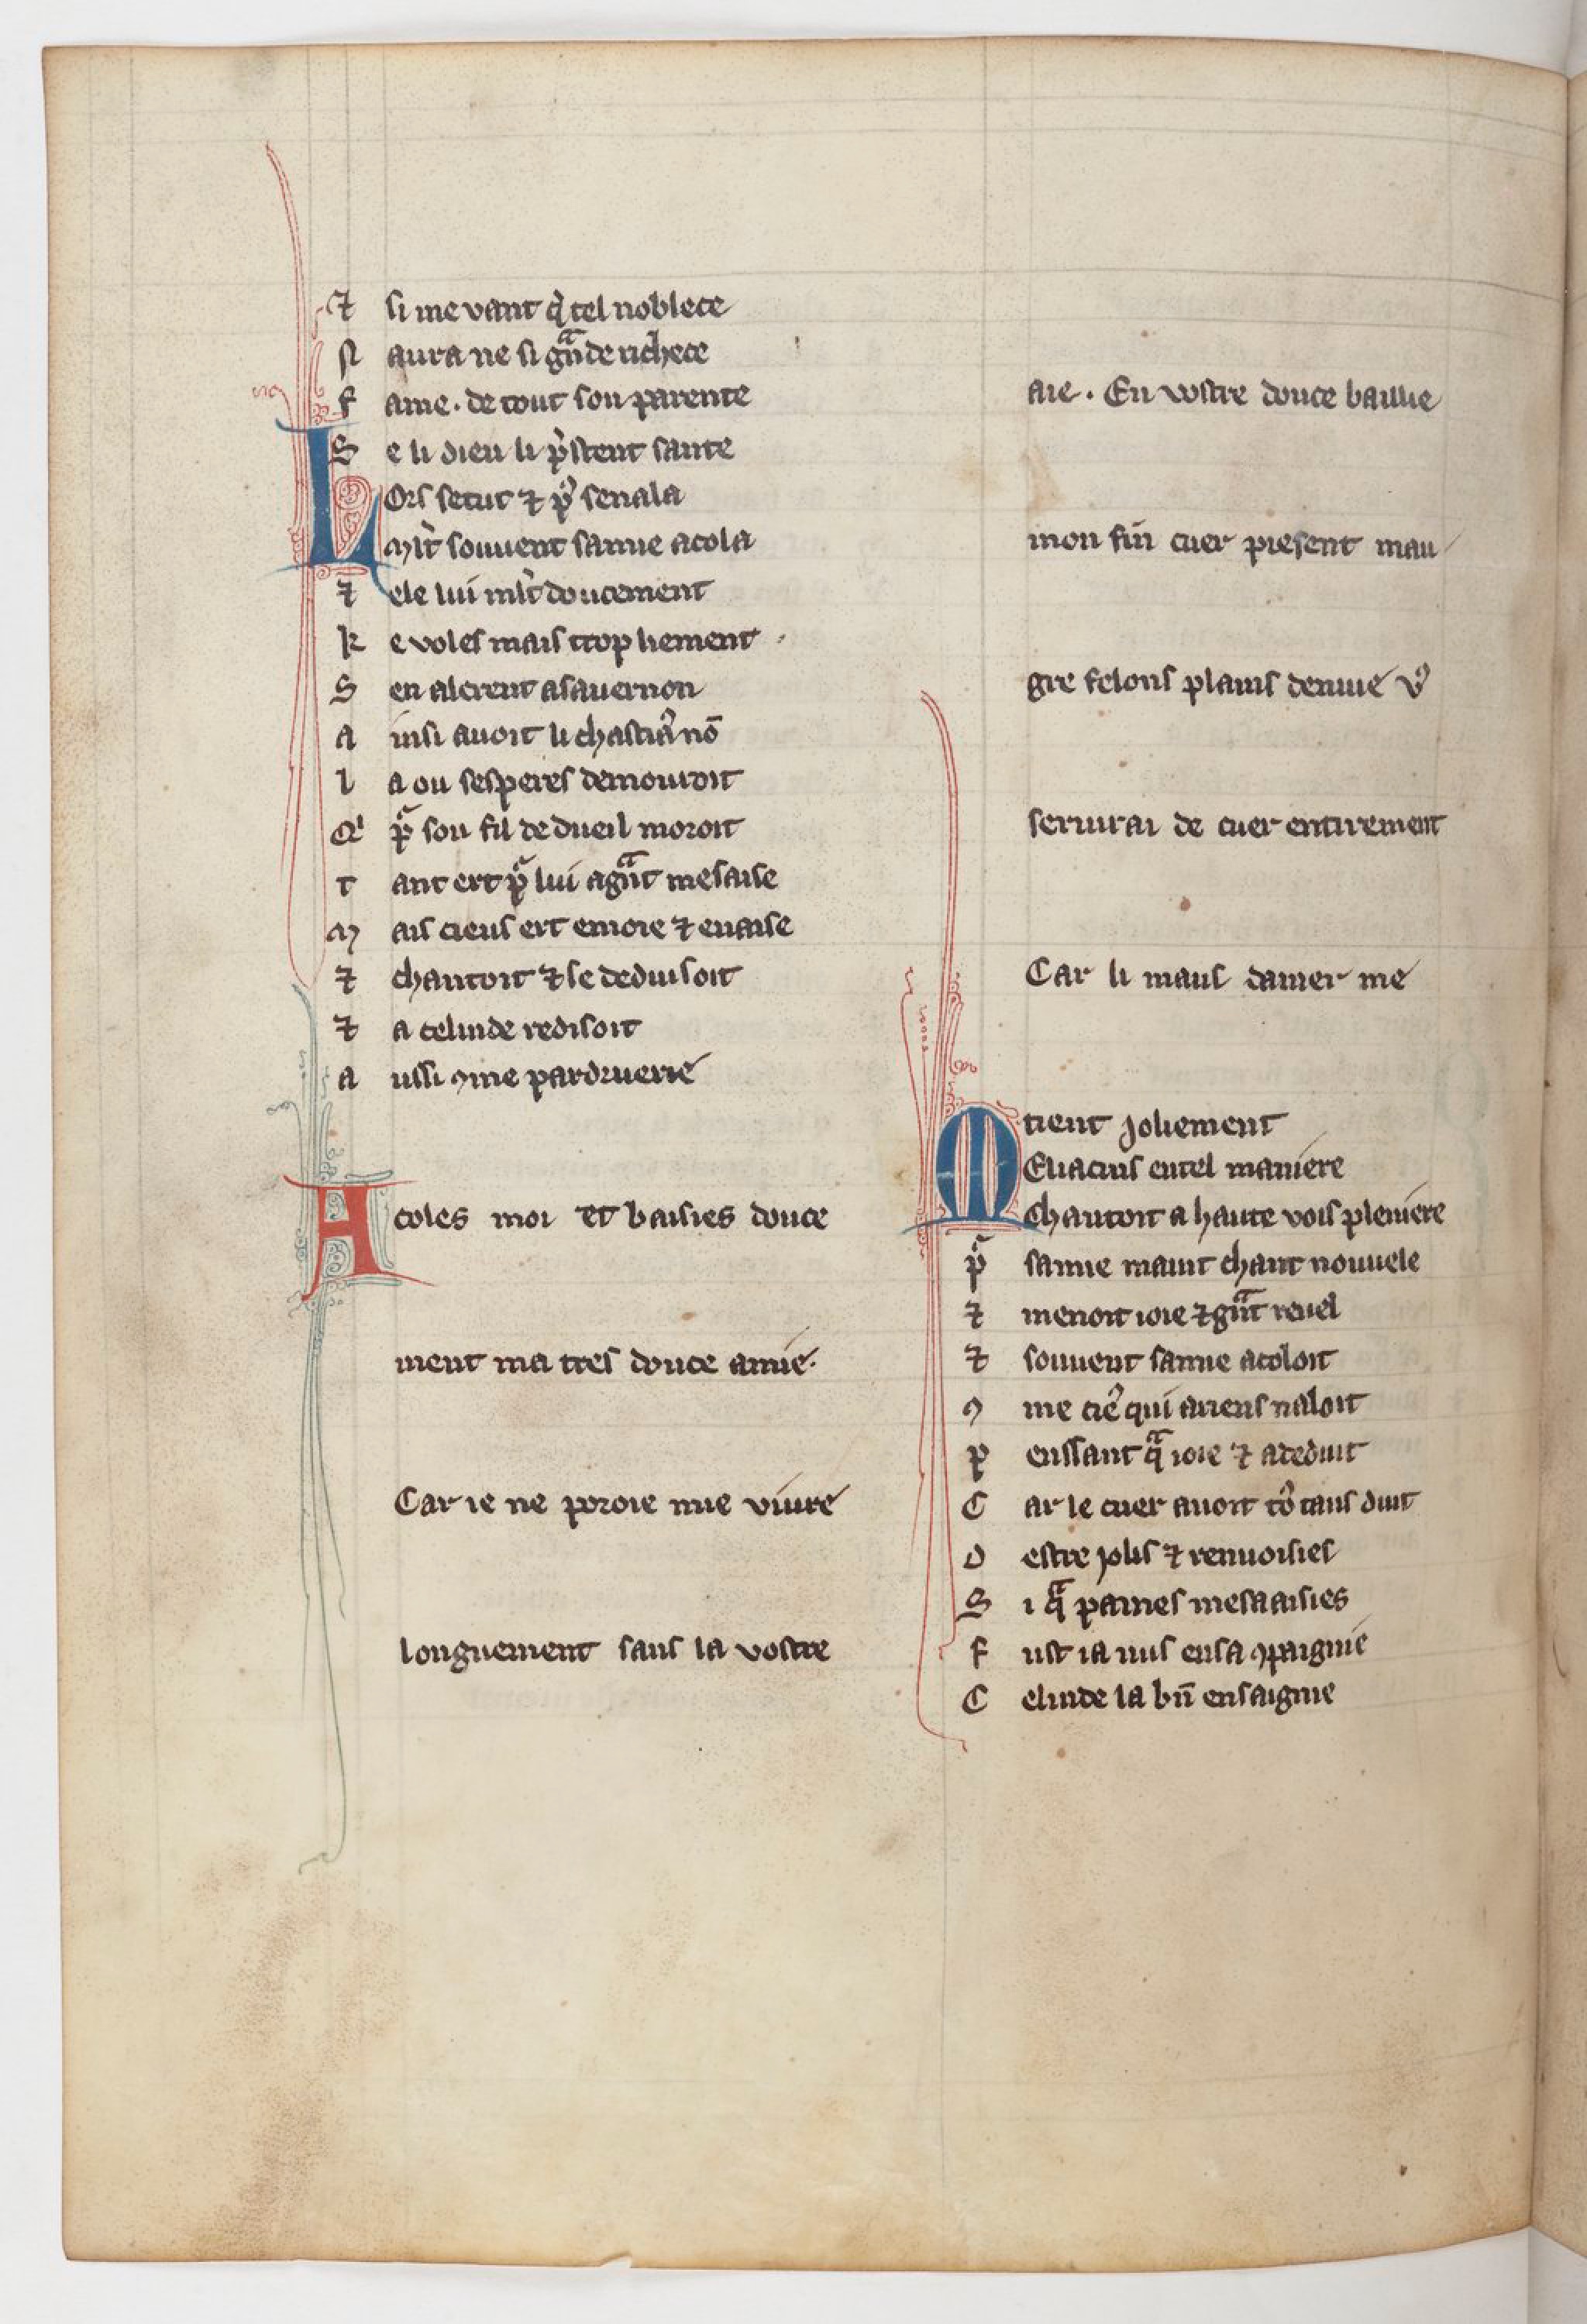 ⁊ si me vant q̓ tel noblece
N aura ne si gᷓnde richece
F ame . de tout son parente
S e li dieu li p̓stent sante
LOrs setut ⁊ pᷣ senala
Ml̓t souuent sanne acola
⁊ ele lui ml̓t doucement
K e voles mais trop liement
S en alerent a sauernon
A insi auoit li chastiaᷣ nō
L a ou ses peres demouroit
Qͥ pᷣ son fil de dueil moroit
T ant ert pᷣ lui a gᷓnt mesaise
M ais cieus ert en ioie ⁊ en aise
⁊ chantoit ⁊ se deduisoit
⁊ a celinde redisoit
A ussi ꝯme par druerie
Acoles moi et baisies douce
ment ma tres douce amie.
Car ie ne poroie mie viure
longuement sans la vostre
aie . En vostre douce baillie
mon fin cuer present mau
gre felons plains denuie vᷣ
seruirai de cuer entirement
Car li maus damer me
tient Joliement
MEliacins en tel maniere
Chantoit a haute vois pleniere
pᷣ sanne maint chant nouuele
⁊ menoit ioie ⁊ gᷓnt reuel
⁊ souuent sanne acoloit
ꝯ me cieᷣ qui a riens naloit
P enssant qᷓ ioie ⁊ a deduit
C ar le cuer auoit toᷣ tans duit
D estre jolis ⁊ renuoisies
S i qᷓ paines mesaaisies
F ust ia nus en sa ꝯpaignie
C elinde la bn̄ ensaignie